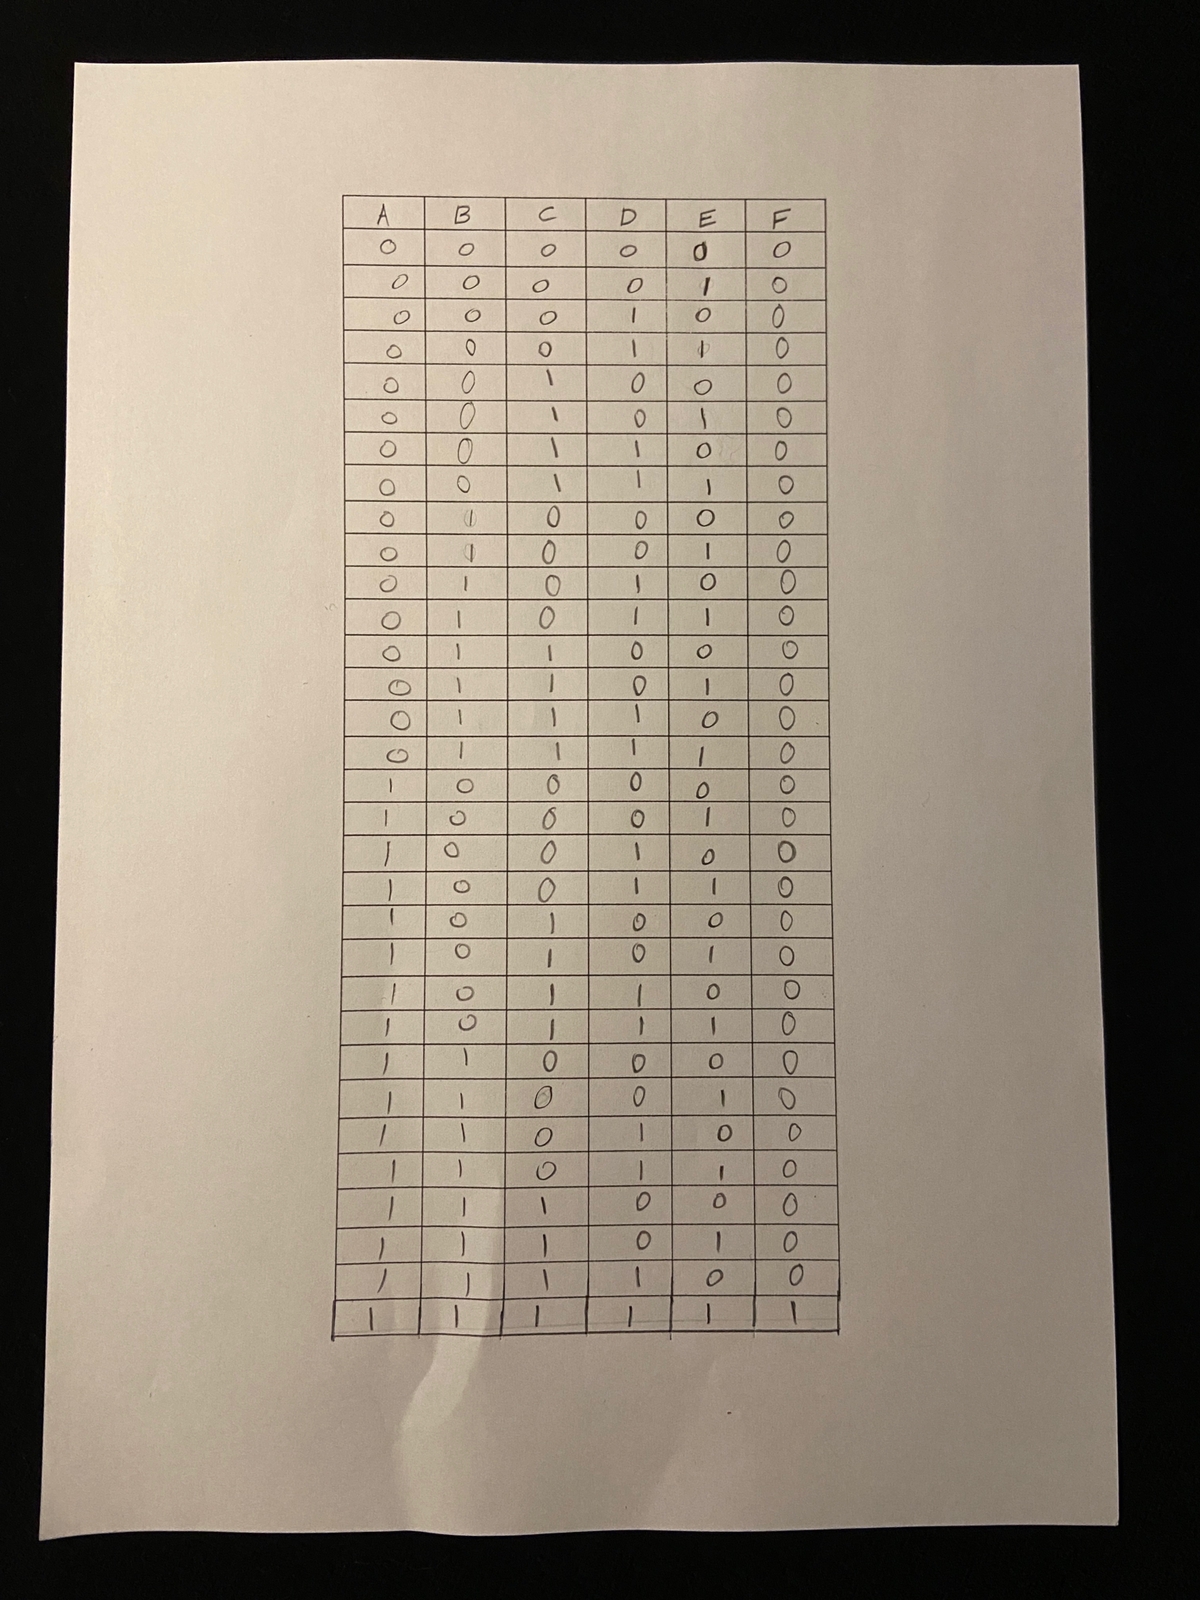 A B C D E F
0 0 0 0 0 0
0 0 0 0 1 0
0 0 0 1 0 0
0 0 0 1 1 0
0 0 1 0 0 0
0 0 1 0 1 0
0 0 1 1 0 0
0 0 1 1 1 0
0 1 0 0 0 0
0 1 0 0 1 0
0 1 0 1 0 0
0 1 0 1 1 0
0 1 1 0 0 0
0 1 1 0 1 0
0 1 1 1 0 0
0 1 1 1 1 0
1 0 0 0 0 0
1 0 0 0 1 0
1 0 0 1 0 0
1 0 0 1 1 0
1 0 1 0 0 0
1 0 1 0 1 0
1 0 1 1 0 0
1 0 1 1 1 0
1 1 0 0 0 0
1 1 0 0 1 0
1 1 0 1 0 0
1 1 0 1 1 0
1 1 1 0 0 0
1 1 1 0 1 0
1 1 1 1 0 0
1 1 1 1 1 1